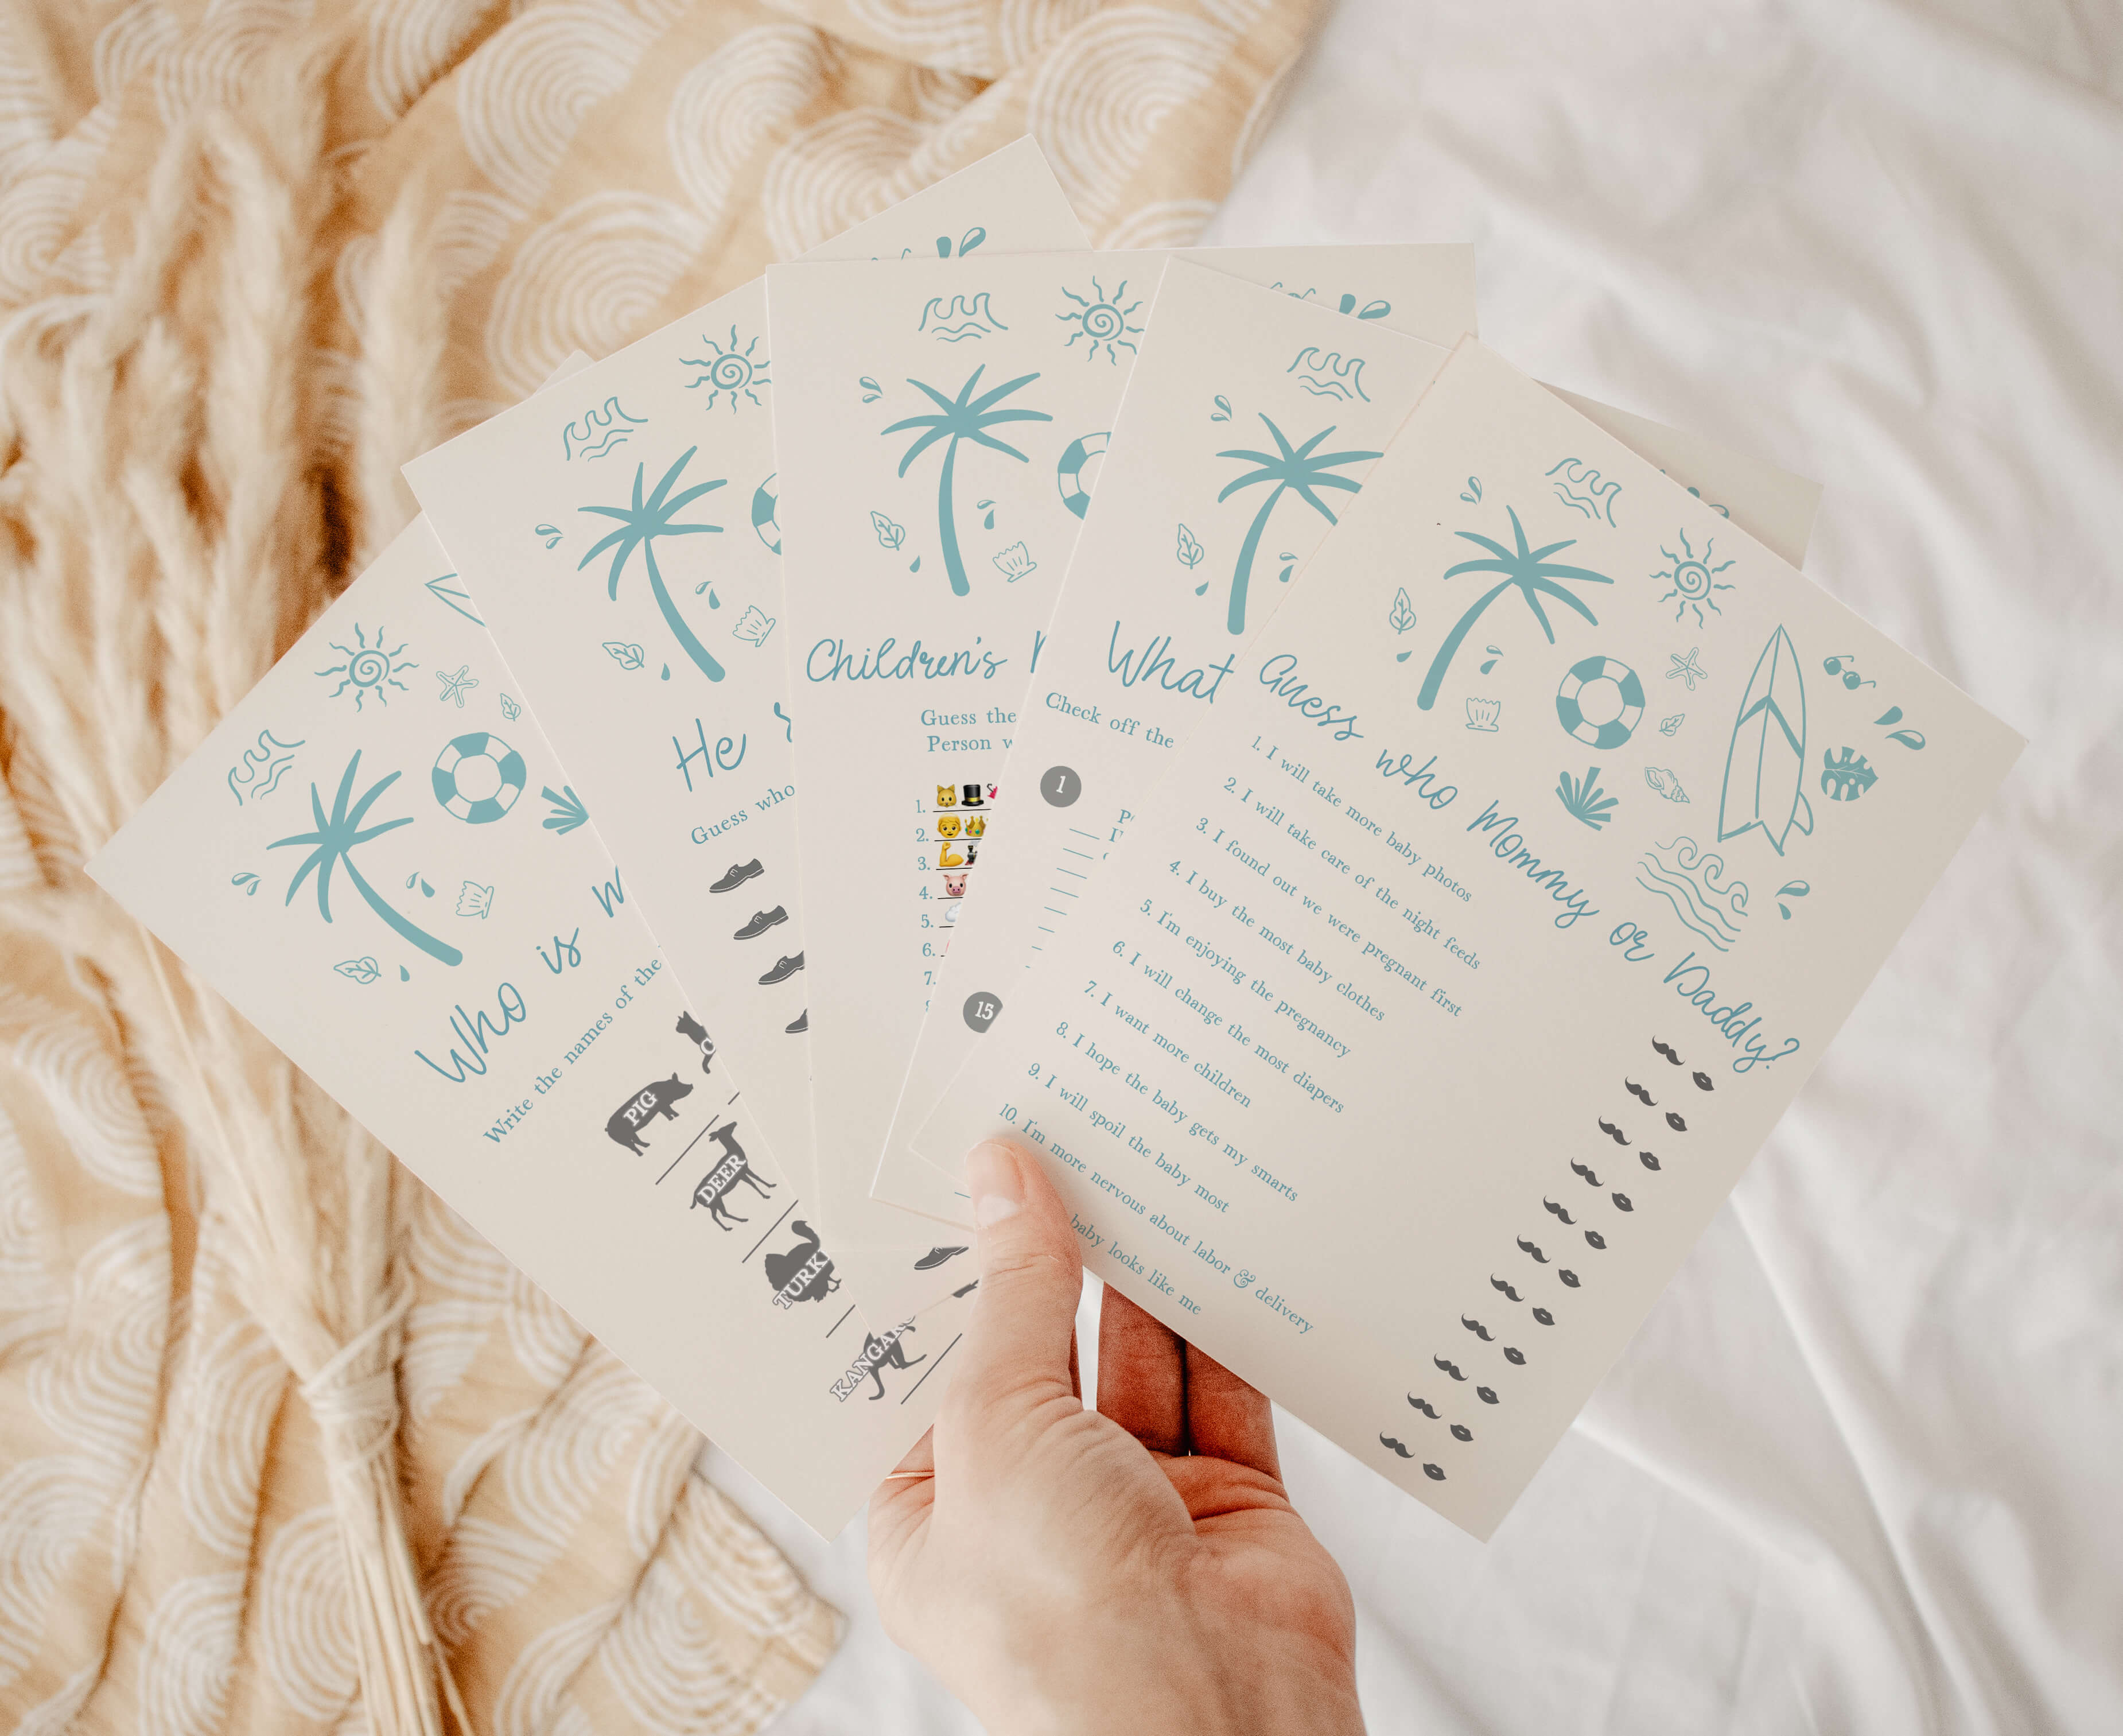 Who is
Write the names of the
PIG
DEER
He
Guess who
Children's
Guess the
Person
1.
2.
3.
4.
5.
6.
7.
What
Check off the
1
15
Guess who Mommy or Daddy?
1. I will take more baby photos
2. I will take care of the night feeds
3. I found out we were pregnant first
4. I buy the most baby clothes
5. I'm enjoying the pregnancy
6. I will change the most diapers
7. I want more children
8. I hope the baby gets my smarts
9. I will spoil the baby most
10. I'm more nervous about labor & delivery
baby looks like me